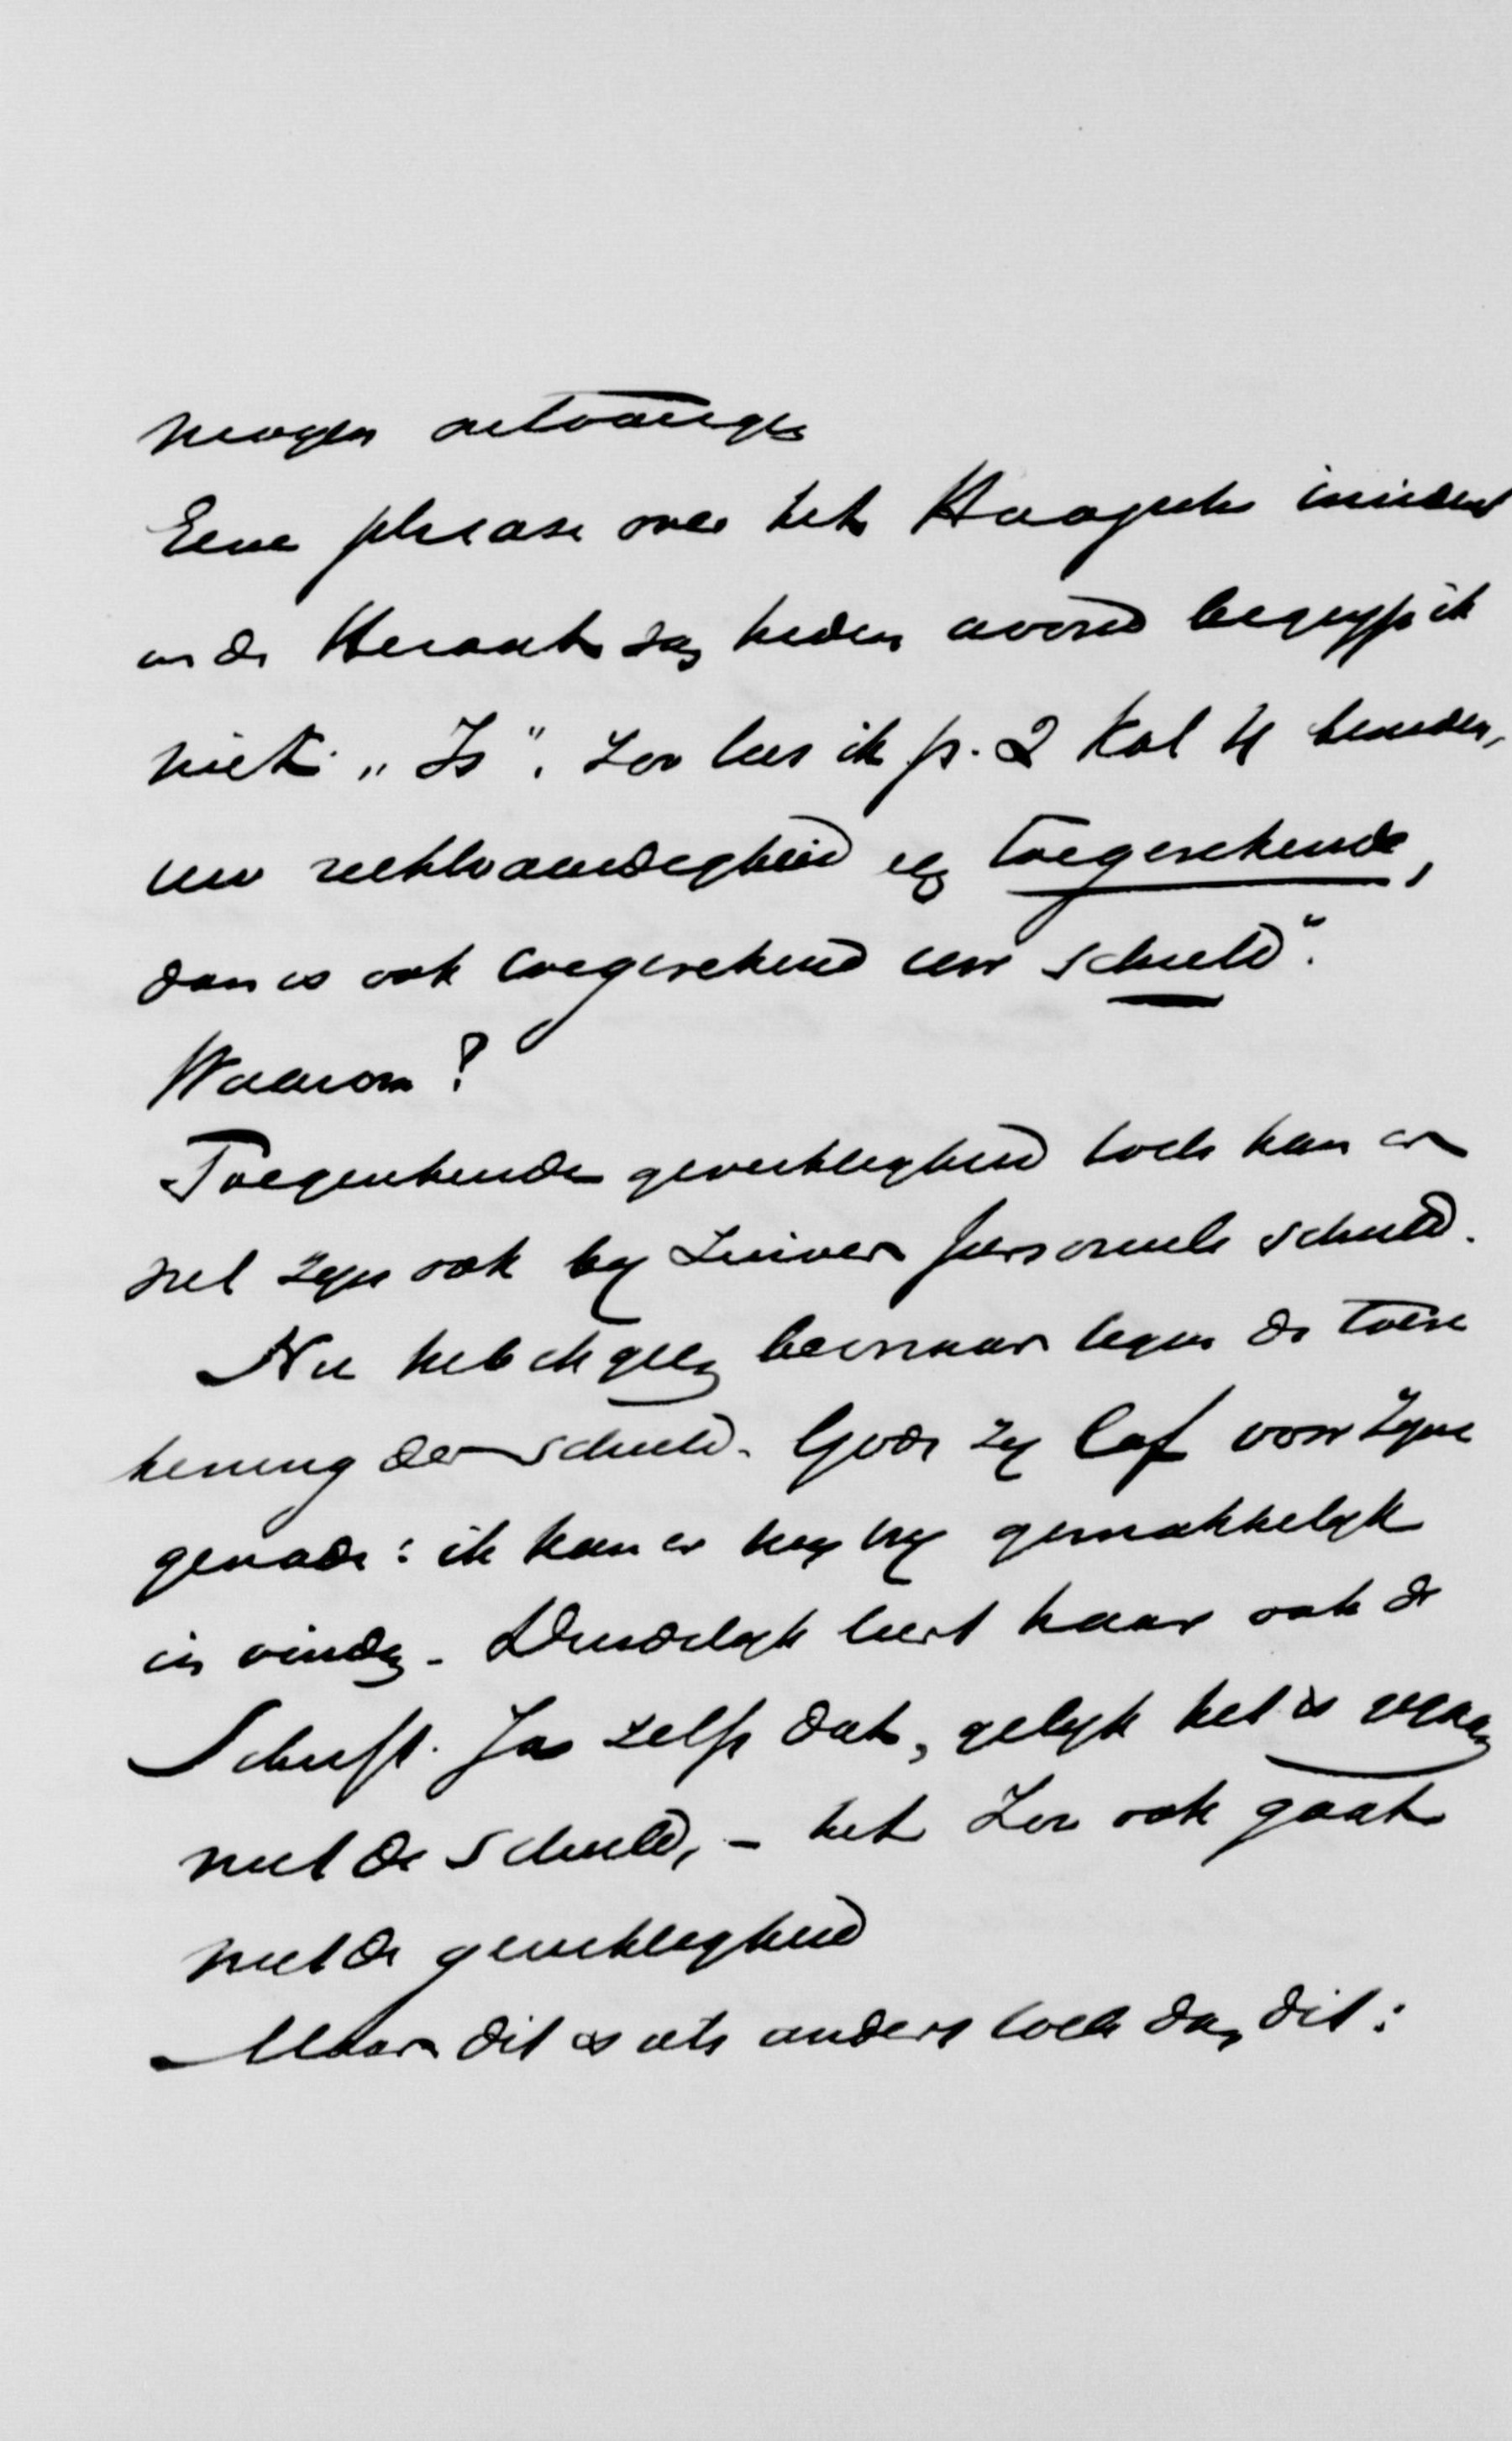 mogen ontvangen
Eene phrase over het Haagsche incident
in de Heraut van heden avond begryp ik
niet. „Is". Zoo lees ik p. 2 kol 4 beneden,
uw rechtvaardigheid een toegerekende,
dan is ook toegerekend uw schuld".
Waarom?
Toegerekende gerechtigheid toch kan er
wel zyn ook by zuiver personeele schuld.
Nu heb ik geen bezwaar tegen de toere
kening der schuld. Gode zy lof voor zyne
genade: ik kan er my gemakkelyk
in vinden. Duidelyk leert haar ook de
Schrift. Ja zelfs dat, gelyk het is gegaan
met de schuld, - het zoo ook gaat
met de gerechtigheid
Maar dit is iets anders toch dan dit: